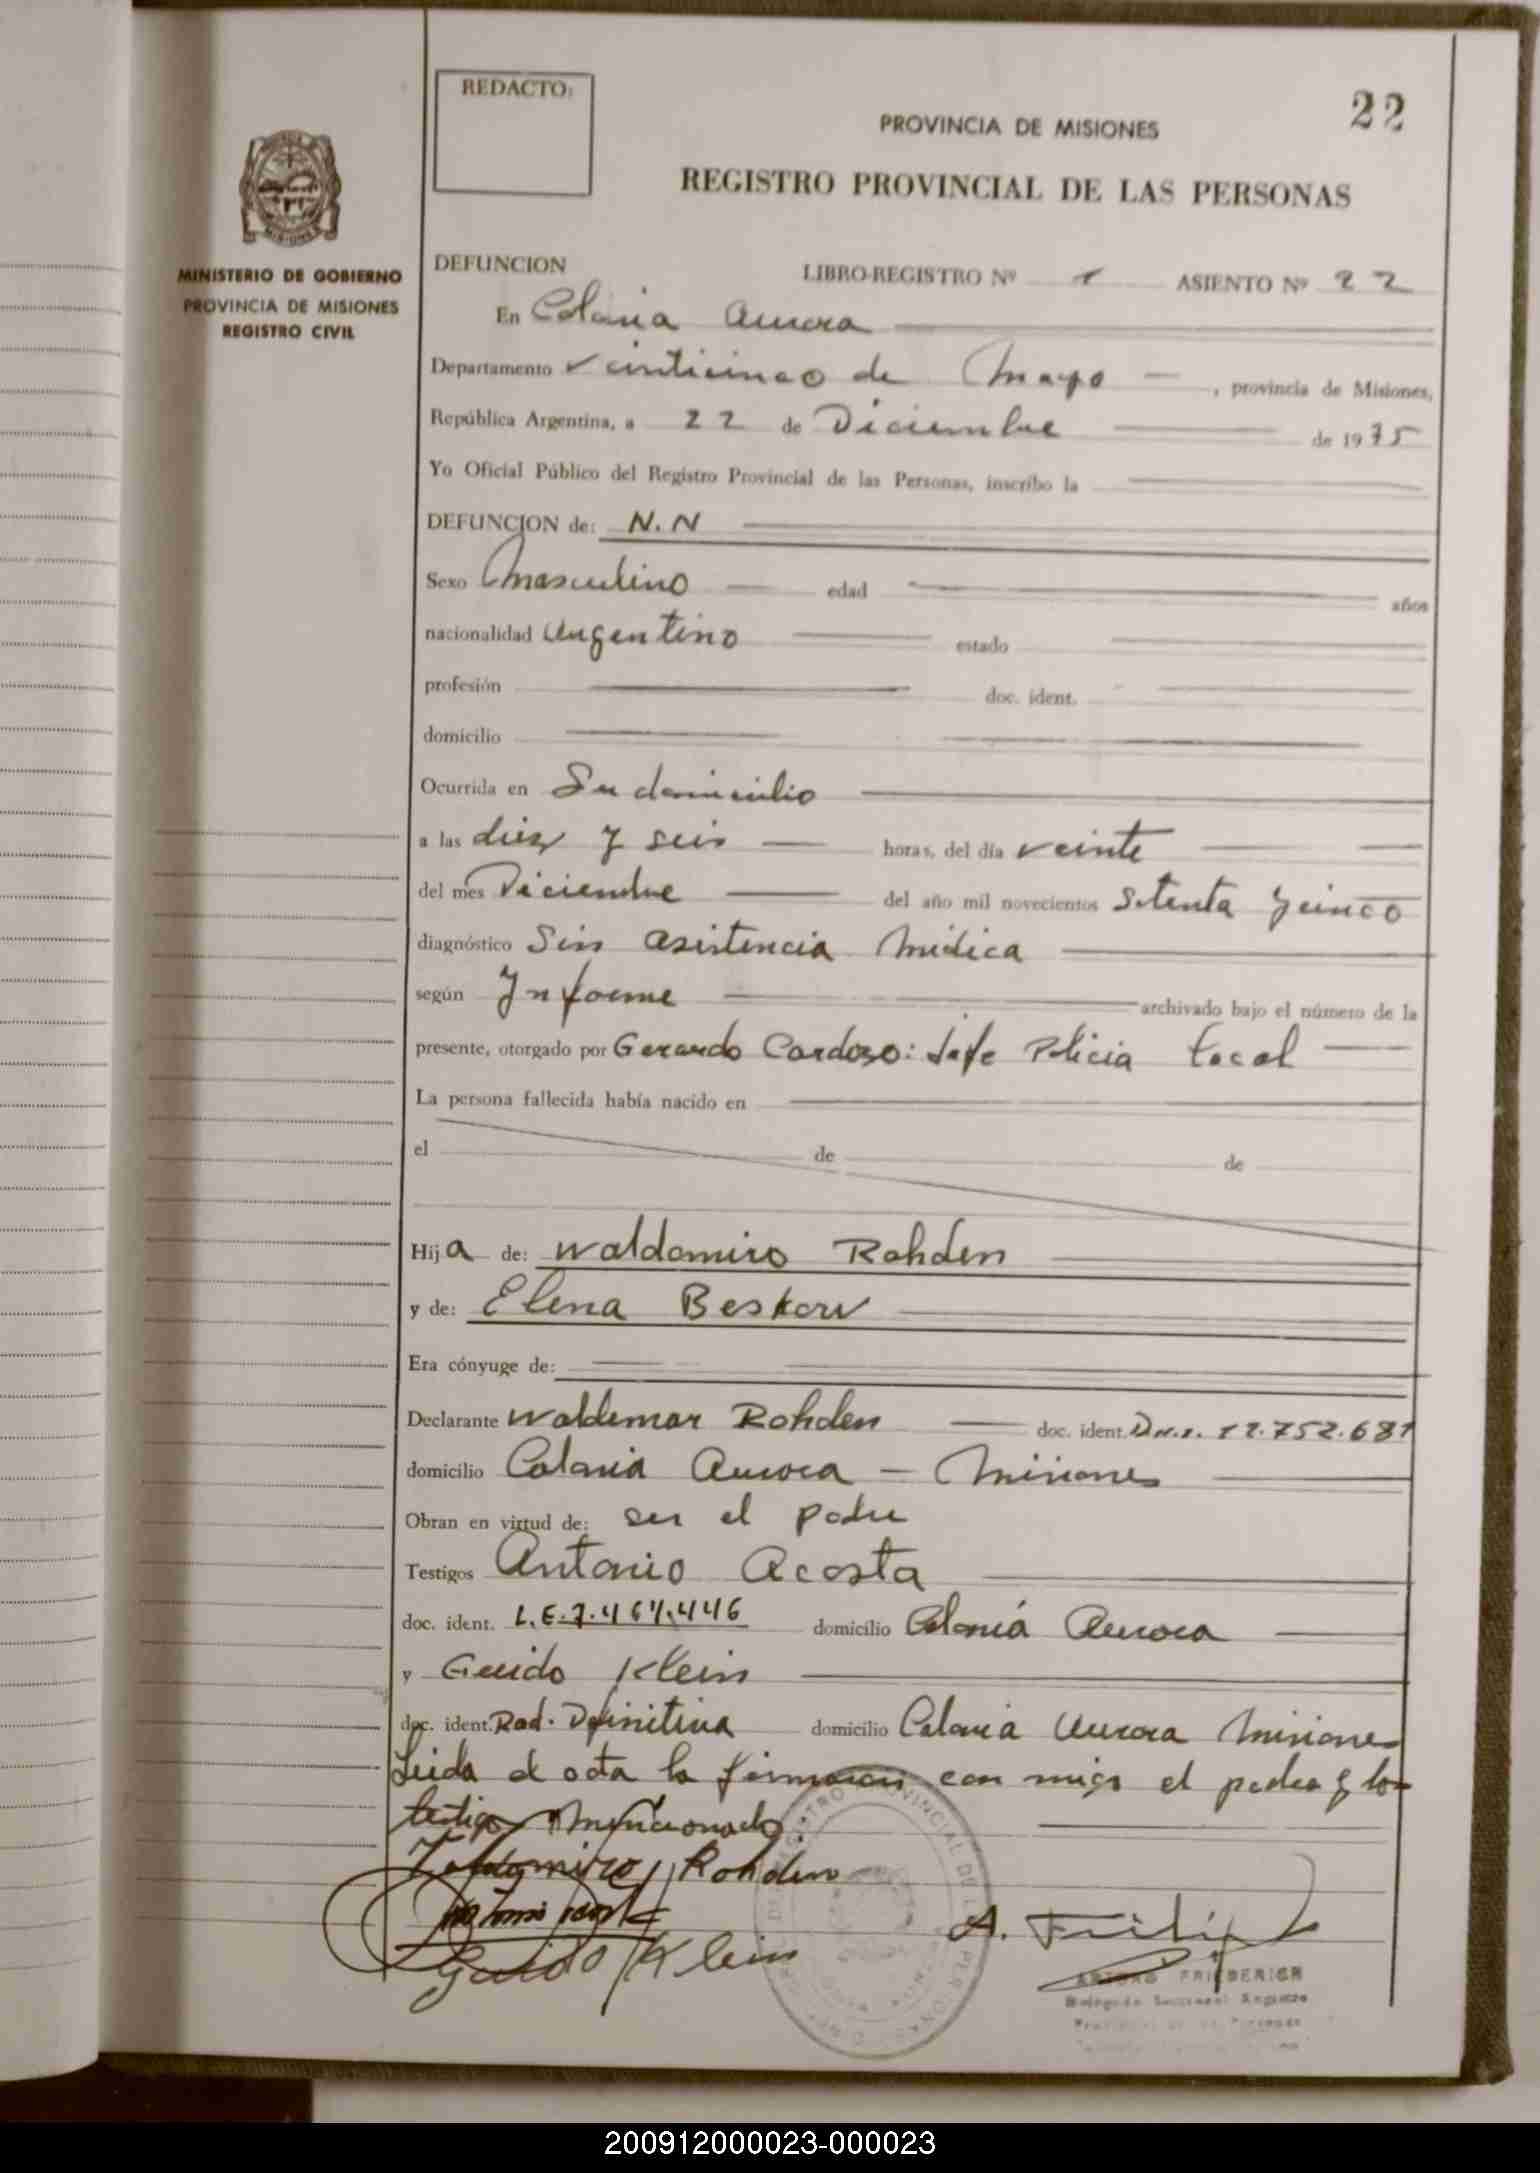 REDACTO:
22
PROVINCIA DE MISIONES
REGISTRO PROVINCIAL DE LAS PERSONAS
MISIONES
MINISTERIO DE GOBIERNO
PROVINCIA DE MISIONES
REGISTRO CIVIL
DEFUNCION LIBRO-REGISTRO Nº 1 ASIENTO Nº 22
En Colonia Aurora
Departamento Veinticinco de Mayo, provincia de Misiones,
República Argentina, a 22 de Diciembre de 1975
Yo Oficial Público del Registro Provincial de las Personas, inscribo la
DEFUNCION de: N.N
Sexo Masculino edad años
nacionalidad Argentino estado
profesión doc. ident.
domicilio
Ocurrida en Su domicilio
a las diez y seis horas, del día veinte
del mes Diciembre del año mil novecientos Setenta y cinco
diagnóstico Sin asistencia Médica
según Informe archivado bajo el número de la
presente, otorgado por Gerardo Cardozo: Jefe Policia Local
La persona fallecida había nacido en
el de de
Hija de: Waldomiro Rohden
y de: Elena Beskow
Era cónyuge de:
Declarante Waldemar Rohden doc. ident. D.N.I. 12.752.681
domicilio Colonia Aurora - Misiones
Obran en virtud de: ser el padre
Testigos Antonio Acosta
doc. ident. L.E.7.464.446 domicilio Colonia Aurora
y Guido Klein
doc. ident. Rad. Definitiva domicilio Colonia Aurora Misiones
Leida el acta la firmaron con migo el padre y los
testigos Mencionados.
Rohden
Guido Klein
A. Frid
ARTURO FRIEDERICH
Delegado Seccional Registro
Provincial de las Personas
200912000023-000023